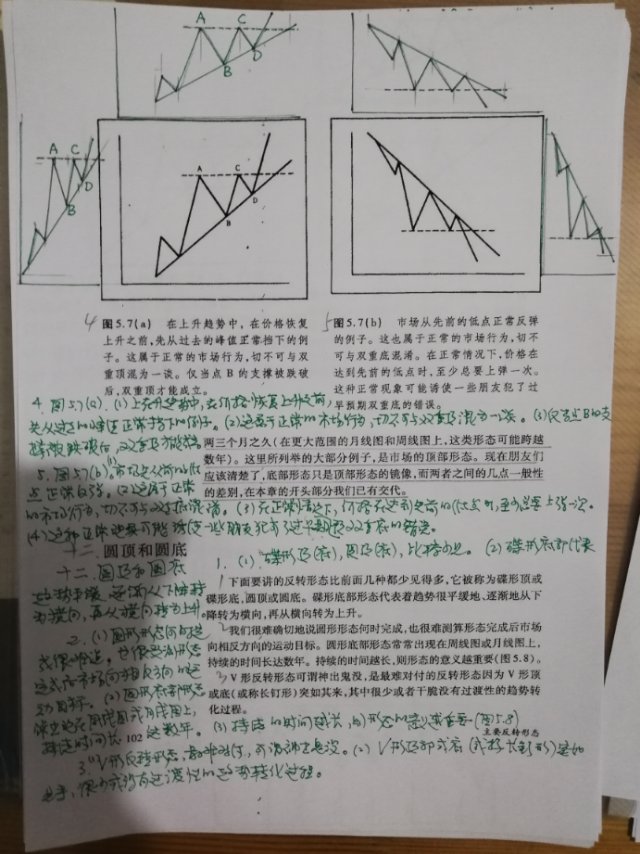 A C
B D
A C
B D
A C
B D
4 图5.7(a) 在上升趋势中，在价格恢复
上升之前，先从过去的峰值正常挡下的例
子。这属于正常的市场行为，切不可与双
重顶混为一谈。仅当点 B 的支撑被跌破
后，双重顶才能成立。
5 图5.7(b) 市场从先前的低点正常反弹
的例子。这也属于正常的市场行为，切不
可与双重底混淆。在正常情况下，价格在
达到先前的低点时，至少总要上弹一次。
这种正常现象可能诱使一些朋友犯了过
早预期双重底的错误。
4. 图5.7(a). (1)上升趋势中，在价格恢复上升之前，
先从过去的峰值正常挡下的例子。(2)这属于正常的市场行为，切不可与双重顶混为一谈。(3)仅当点B的支
撑被跌破后，双重顶才能成立。
两三个月之久(在更大范围的月线图和周线图上，这类形态可能跨越
数年)。这里所列举的大部分例子，是市场的顶部形态。现在朋友们
应该清楚了，底部形态只是顶部形态的镜像，而两者之间的几点一般性
的差别，在本章的开头部分我们已有交代。
5. 图5.7(b).(1)市场从先前的低
点正常反弹。(2)这属于正常
的市场行为，切不可与双重底混淆。(3)在正常情况下，价格在达到先前的低点时，至少总要上弹一次。
(4)这种正常现象可能诱使一些朋友犯了过早预期双重底的错误。
十二、圆顶和圆底
1. (1)碟形顶(底)，圆顶(底)，比较少见。(2)碟形底部代表
十二. 圆顶和圆底
着趋势平缓、逐渐从下降转
为横向，再从横向转为上升。
1 下面要讲的反转形态比前面几种都少见得多，它被称为碟形顶或
碟形底，圆顶或圆底。碟形底部形态代表着趋势很平缓地、逐渐地从下
降转为横向，再从横向转为上升。
2. (1)圆形形态何时完
成很难说，也很难测算形态
完成后市场向相反方向的运
动目标。(2)圆形底部形态
常出现在周线图或月线图上，
持续时间长达数年。(3)持续的时间越长，则形态的意义越重要(图5.8)
2 我们很难确切地说圆形形态何时完成，也很难测算形态完成后市场
向相反方向的运动目标。圆形底部形态常常出现在周线图或月线图上，
持续的时间长达数年。持续的时间越长，则形态的意义越重要(图5.8)。
3 V形反转形态可谓神出鬼没，是最难对付的反转形态因为 V 形顶
或底(或称长钉形)突如其来，其中很少或者干脆没有过渡性的趋势转
化过程。
102
主要反转形态
3. (1)V形反转形态，最难对付，可谓神出鬼没。(2) V形顶部或底(或称长钉形)突如
其来，很少或没有过渡性的趋势转化过程。